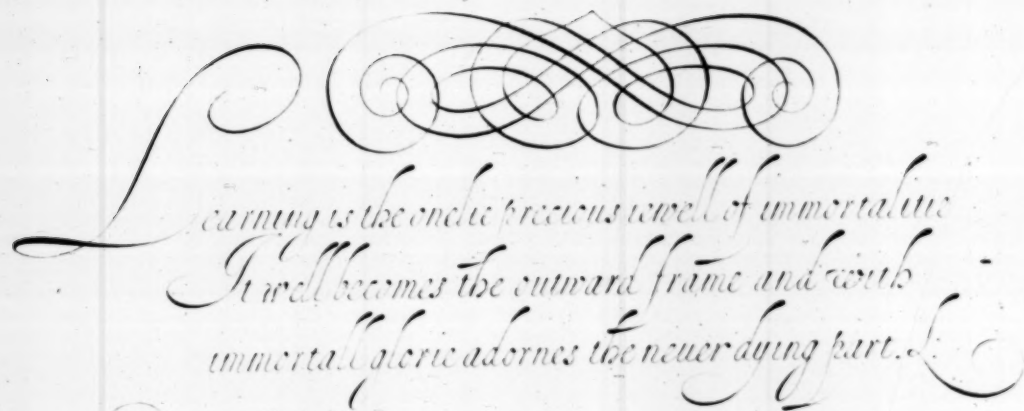 Learning is the onelie precious iewell of immortalitie
It well becomes the outward frame and with
immortall glorie adornes the neuer dying part. L